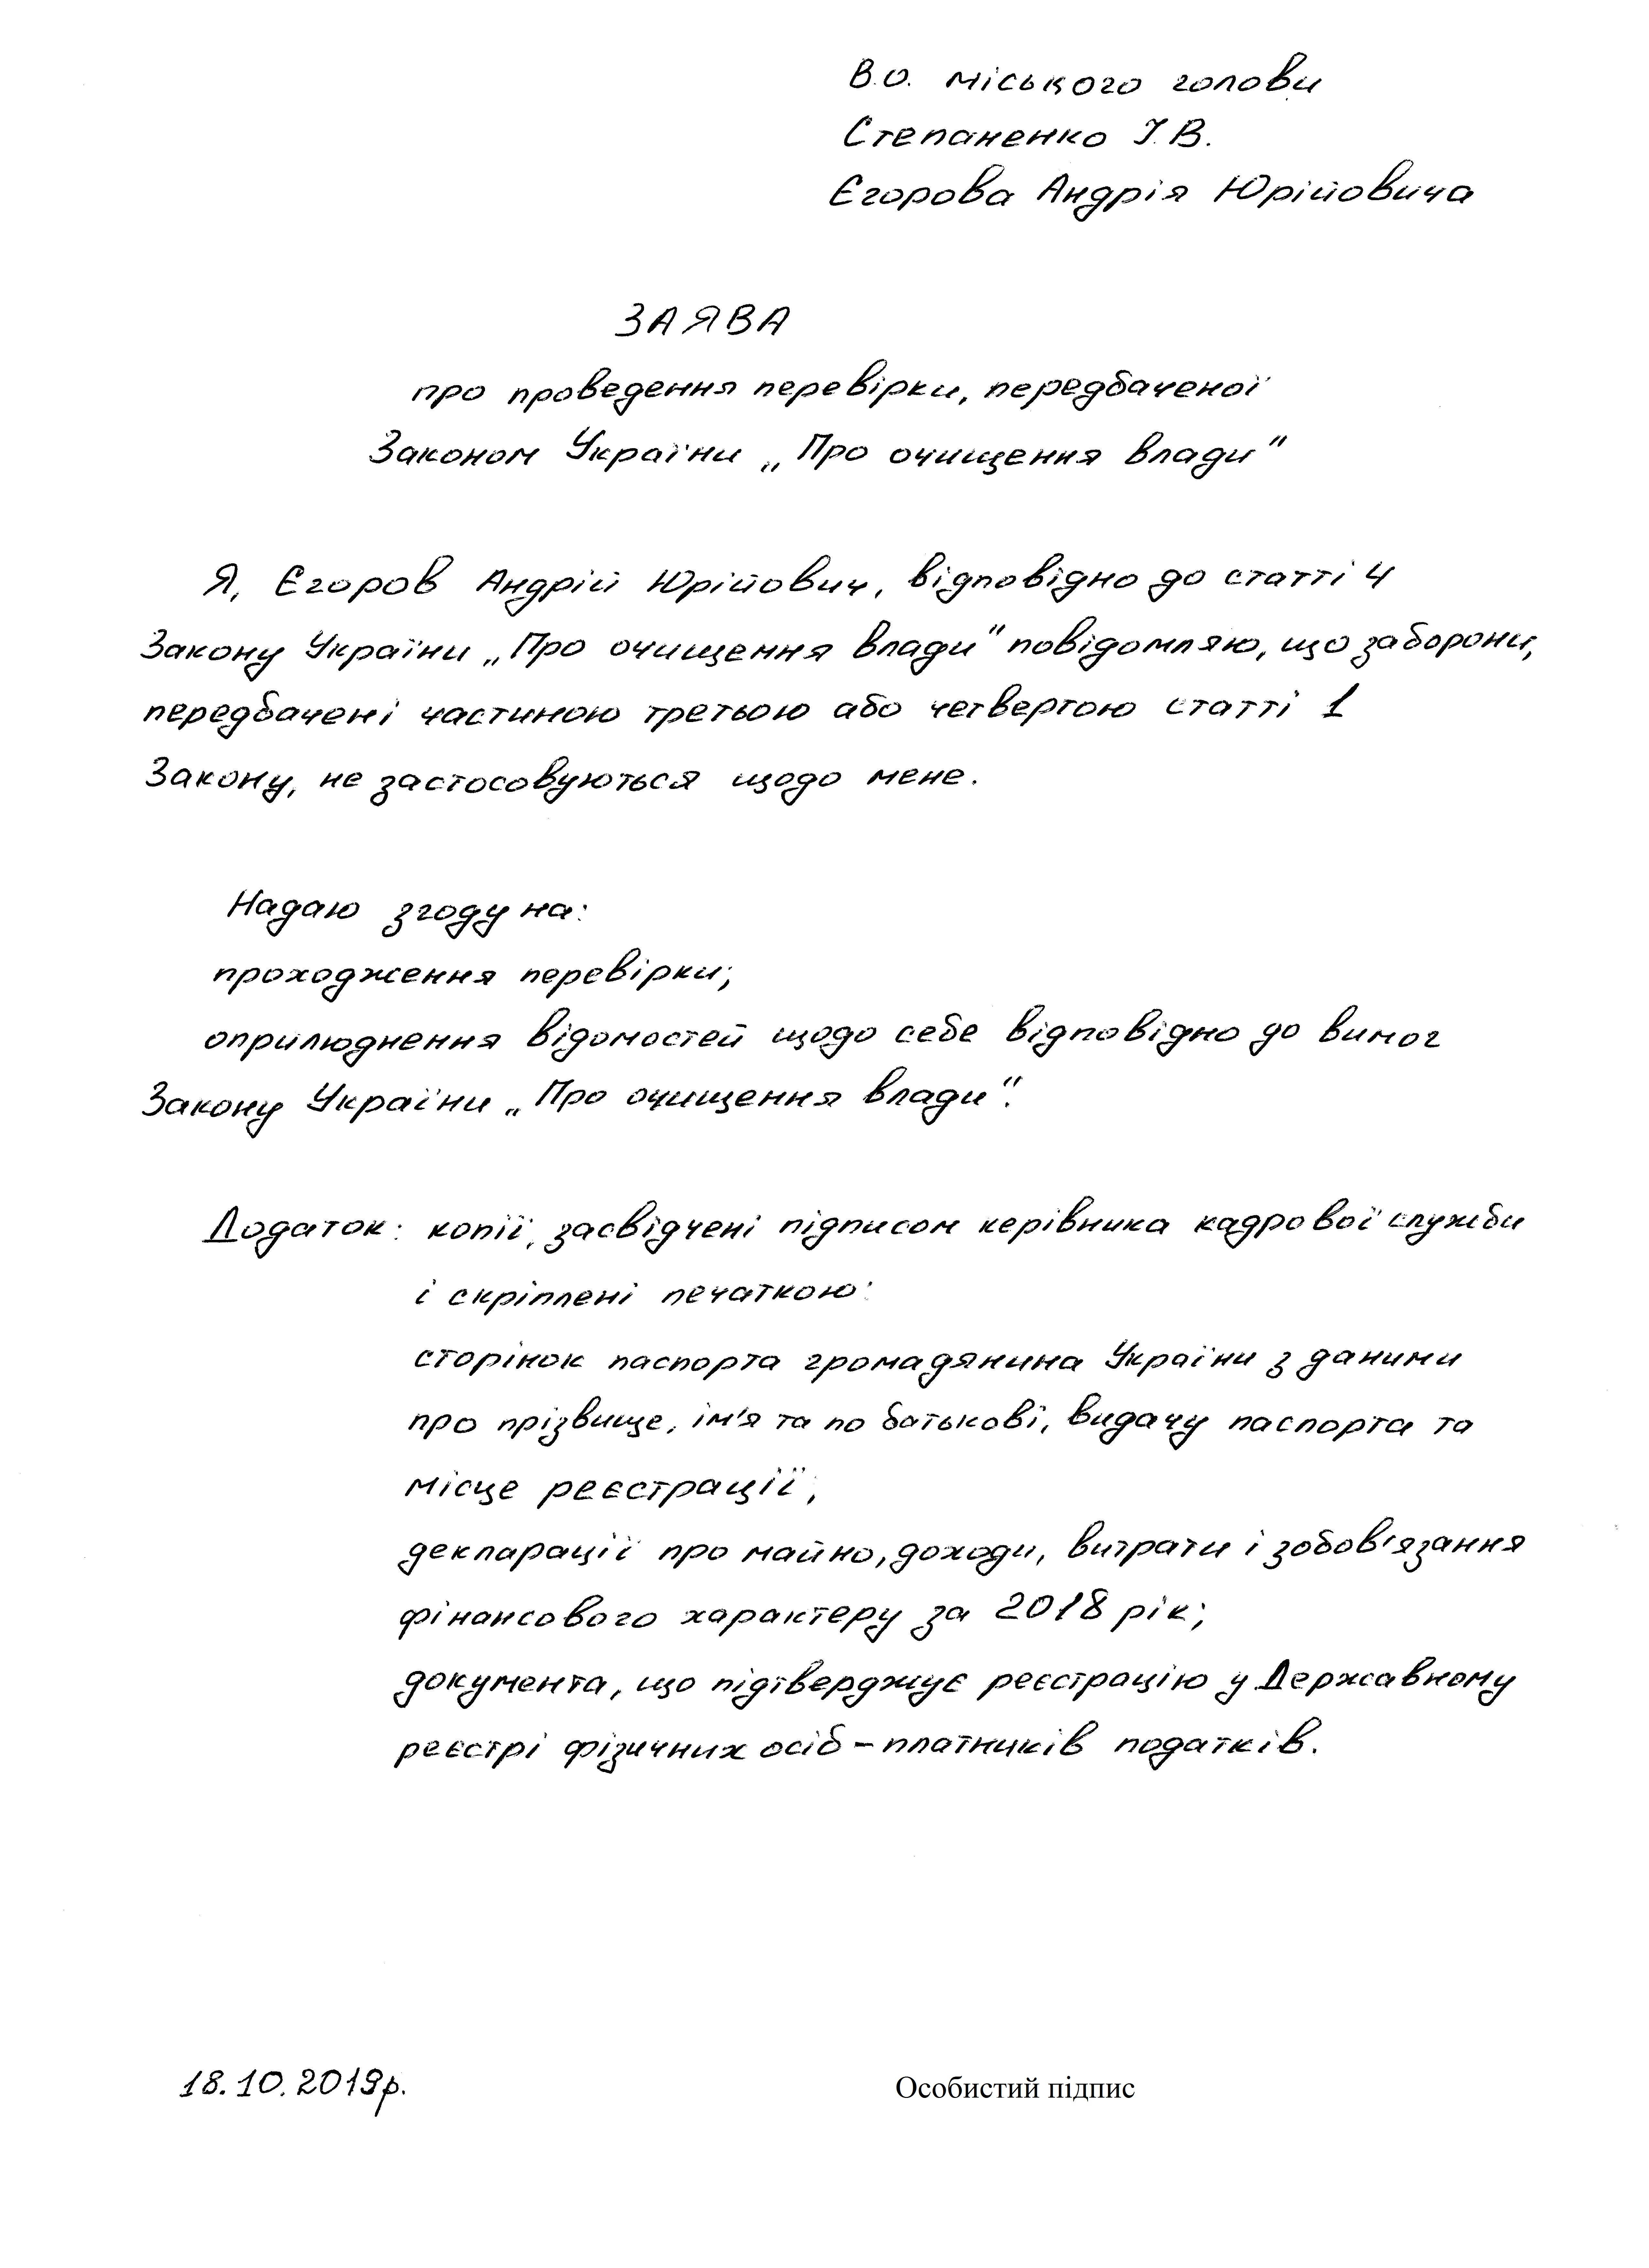 В.о. міського голови
Степаненко І.В.
Єгорова Андрія Юрійовича
ЗАЯВА
про проведення перевірки, передбаченої
Законом України „Про очищення влади"
Я, Єгоров Андрій Юрійович, відповідно до статті 4
Закону України „Про очищення влади" повідомляю, що заборони,
передбачені частиною третьою або четвертою статті 1
Закону, не застосовуються щодо мене.
Надаю згоду на:
проходження перевірки;
оприлюднення відомостей щодо себе відповідно до вимог
Закону України „Про очищення влади".
Додаток: копії, засвідчені підписом керівника кадрової служби
і скріплені печаткою:
сторінок паспорта громадянина України з даними
про прізвище, ім'я та по батькові, видачу паспорта та
місце реєстрації;
декларації про майно, доходи, витрати і зобов'язання
фінансового характеру за 2018 рік;
документа, що підтверджує реєстрацію у Державному
реєстрі фізичних осіб – платників податків.
18.10.2019р. Особистий підпис